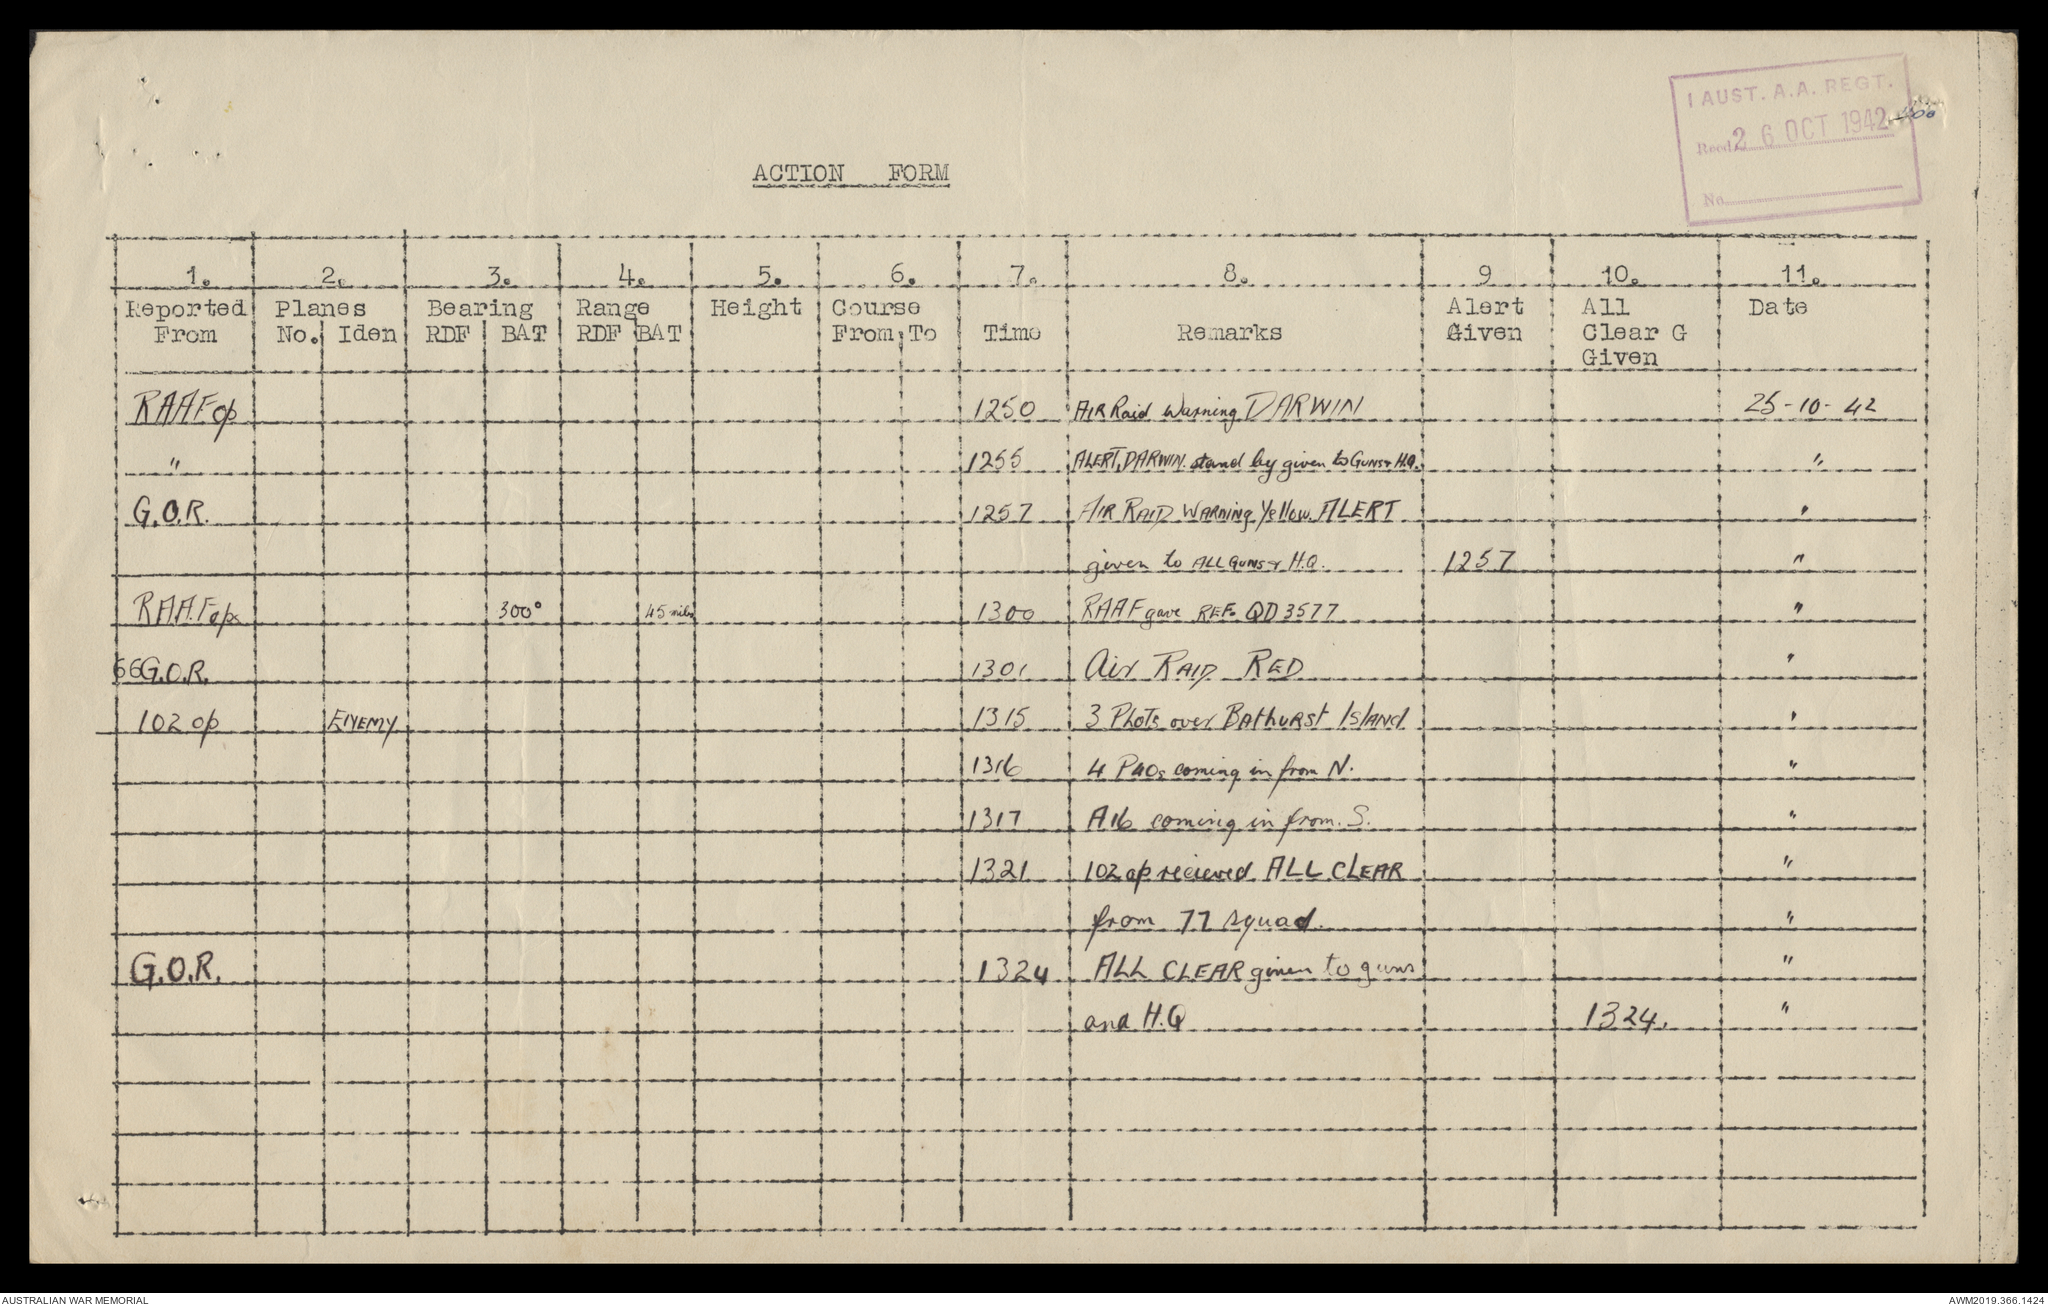 1 AUST. A.A. REGT.
Recd 26 OCT 1942
No.
ACTION FORM
1. 2. 3. 4. 5. 6. 7. 8. 9 10. 11.
Reported Planes Bearing Range Height Course Alert All Date
From No. Iden RDF BAT RDF BAT From To Time Remarks Given Clear G
Given
RAAF op 1250 AIR Raid Warning DARWIN 25-10-42
" 1255 ALERT, DARWIN. stand by given to GUNS & H.Q. "
G.O.R. 1257 AIR RAID WARNING Yellow. ALERT "
given to ALL GUNS & H.Q. 1257 "
RAAF ops 300° 45 miles 1300 RAAF gave REF. QD 3577 "
66 G.O.R. 1301 Air RAID RED "
102 op ENEMY 1315 3 Plots over BAthURSt ISLANd "
1316 4 P40s coming in from N. "
1317 A16 coming in from S. "
1321 102 op recieved ALL CLEAR "
from 77 squad. "
G.O.R. 1324 ALL CLEAR given to guns "
and H.Q 1324. "
AUSTRALIAN WAR MEMORIAL AWM2019.366.1424